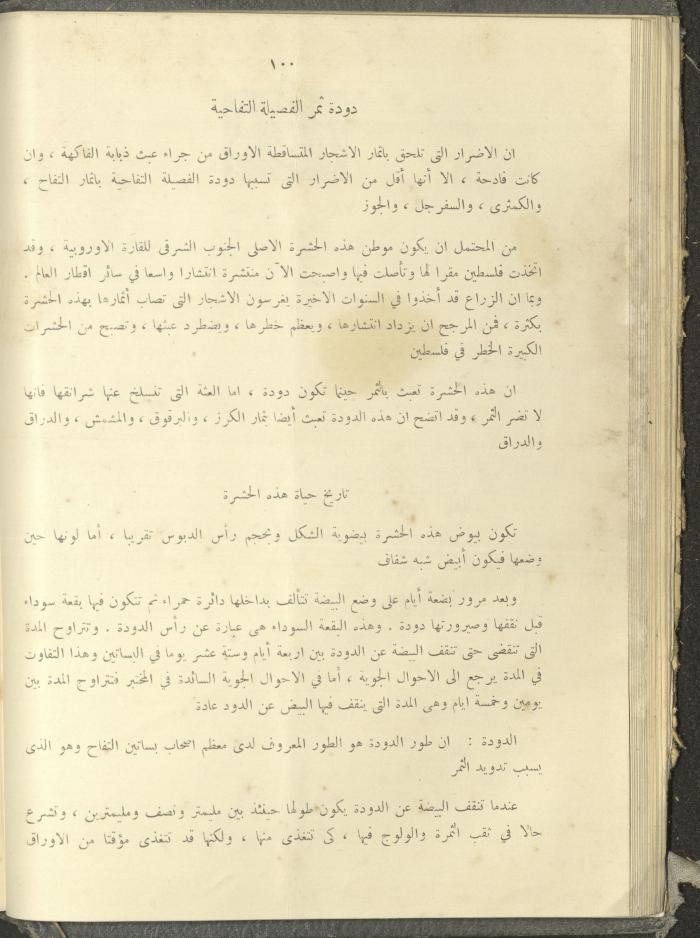 ١٠٠
دودة ثمر الفصيلة التفاحية
ان الاضرار التى تلحق باثمار الاشجار المتساقطة الاوراق من جراء عبث ذبابة الفاكهة ، وان
كانت فادحة ، الا أنها أقل من الاضرار التى تسببها دودة الفصيلة التفاحية باثمار التفاح ،
والكمثرى ، والسفرجل ، والجوز
من المحتمل ان يكون موطن هذه الحشرة الاصلى الجنوب الشرقى للقارة الاوروبية ، وقد
اتخذت فلسطين مقرا لها وتأصلت فيها واصبحت الآن منتشرة انتشارا واسعا في سائر اقطار العالم .
وبما ان الزراع قد أخذوا في السنوات الاخيرة يغرسون الاشجار التى تصاب أثمارها بهذه الحشرة
بكثرة ، فمن المرجح ان يزداد انتشارها ، ويعظم خطرها ، ويضطرد عبثها ، وتصبح من الحشرات
الكبيرة الخطر في فلسطين
ان هذه الحشرة تعبث بالثمر حينما تكون دودة ، اما العثة التى تنسلخ عنها شرانقها فانها
لا تضر الثمر ، وقد اتضح ان هذه الدودة تعبث أيضا بثمار الكرز ، والبرقوق ، والمشمش ، والدراق
والدراق
تاريخ حياة هذه الحشرة
تكون بيوض هذه الحشرة بيضوية الشكل وبحجم رأس الدبوس تقريبا ، أما لونها حين
وضعها فيكون أبيض شبه شفاف
وبعد مرور بضعة أيام على وضع البيضة تتألف بداخلها دائرة حمراء ثم تتكون فيها بقعة سوداء
قبل نقفها وصيرورتها دودة . وهذه البقعة السوداء هى عبارة عن رأس الدودة . وتتراوح المدة
التى تنقضى حتى تنقف البيضة عن الدودة بين اربعة أيام وستة عشر يوما في البساتين وهذا التفاوت
في المدة يرجع الى الاحوال الجوية ، أما في الاحوال الجوية السائدة في المختبر فتتراوح المدة بين
يومين وخمسة ايام وهى المدة التى ينقف فيها البيض عن الدود عادة
الدودة : ان طور الدودة هو الطور المعروف لدى معظم اصحاب بساتين التفاح وهو الذى
يسبب تدويد الثمر
عندما تنقف البيضة عن الدودة يكون طولها حينئذ بين مليمتر ونصف ومليمترين ، وتشرع
حالا في ثقب الثمرة والولوج فيها ، كى تتغذى منها ، ولكنها قد تتغذى مؤقتا من الاوراق